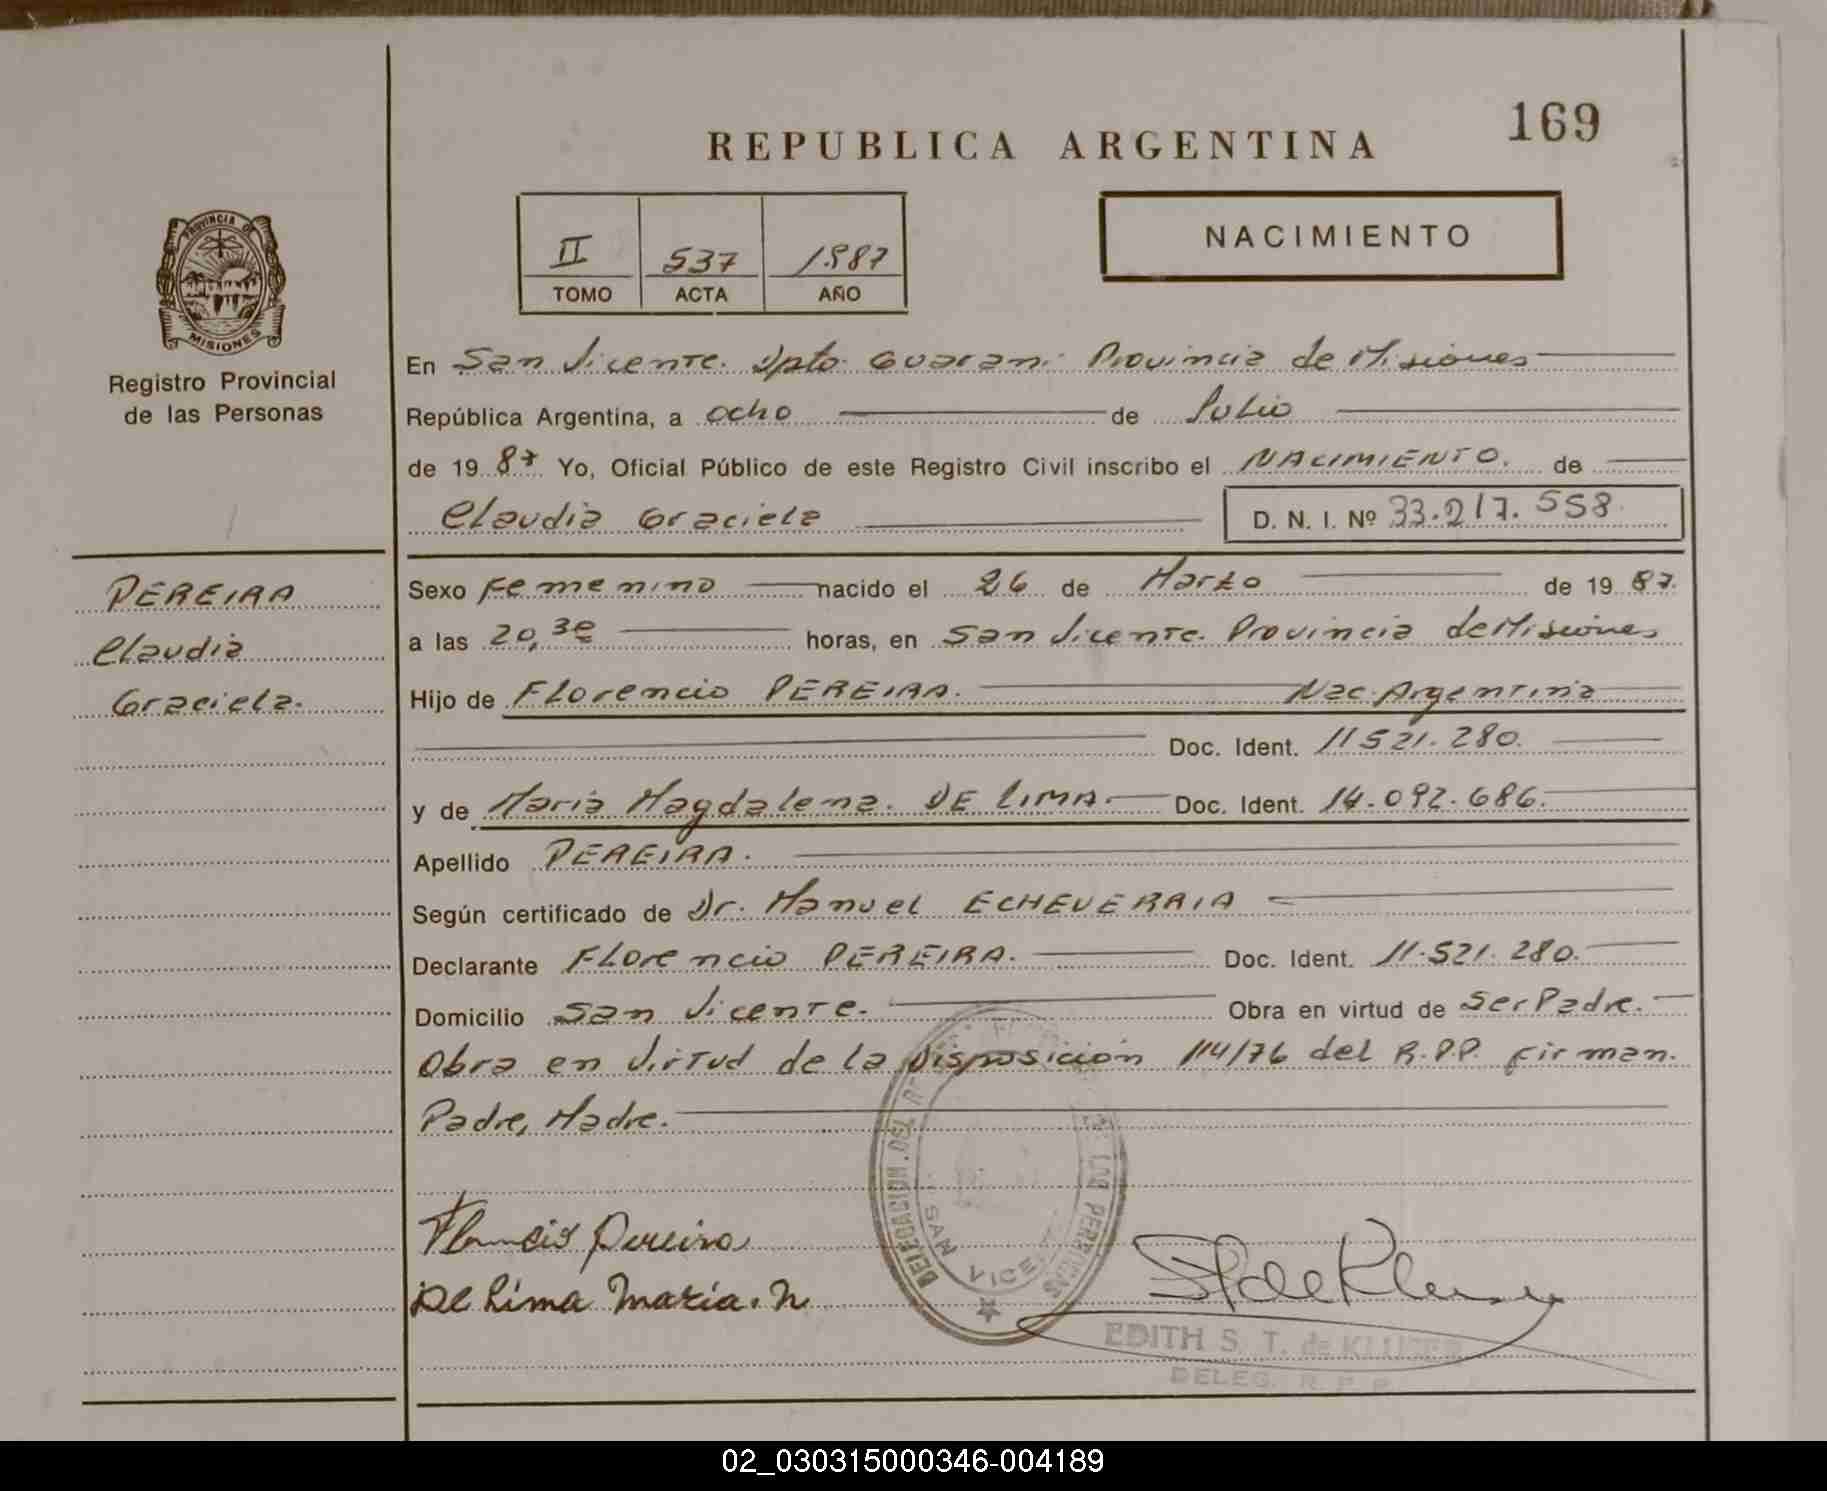 169
REPUBLICA ARGENTINA
II 537 1987
TOMO ACTA AÑO
NACIMIENTO
PROVINCIA DE MISIONES
Registro Provincial
de las Personas
En San Vicente. Dpto. Guarani Provincia de Misiones
República Argentina, a ocho de Julio
de 1987 Yo, Oficial Público de este Registro Civil inscribo el NACIMIENTO. de
Claudia Graciela D. N. I. Nº 33.217.558
PEREIRA
Claudia
Graciela.
Sexo Femenino nacido el 26 de Marzo de 1987.
a las 20,30 horas, en San Vicente. Provincia de Misiones
Hijo de Florencio PEREIRA. Nac. Argentina
Doc. Ident. 11.521.280.
y de Maria Magdalena. DE LIMA. Doc. Ident. 14.092.686.
Apellido PEREIRA.
Según certificado de Dr. Manuel ECHEVERRIA
Declarante Florencio PEREIRA. Doc. Ident. 11.521.280.
Domicilio San Vicente. Obra en virtud de Ser Padre.
Obra en virtud de la Disposición 114/76 del R.P.P. firman.
Padre, Madre.
DELEGACION DEL LAS PERSONAS
SAN VICENTE
Florencio Pereira
De Lima Maria. M
EDITH S. T. de KLUSER
DELEG. R. P. P.
02_030315000346-004189